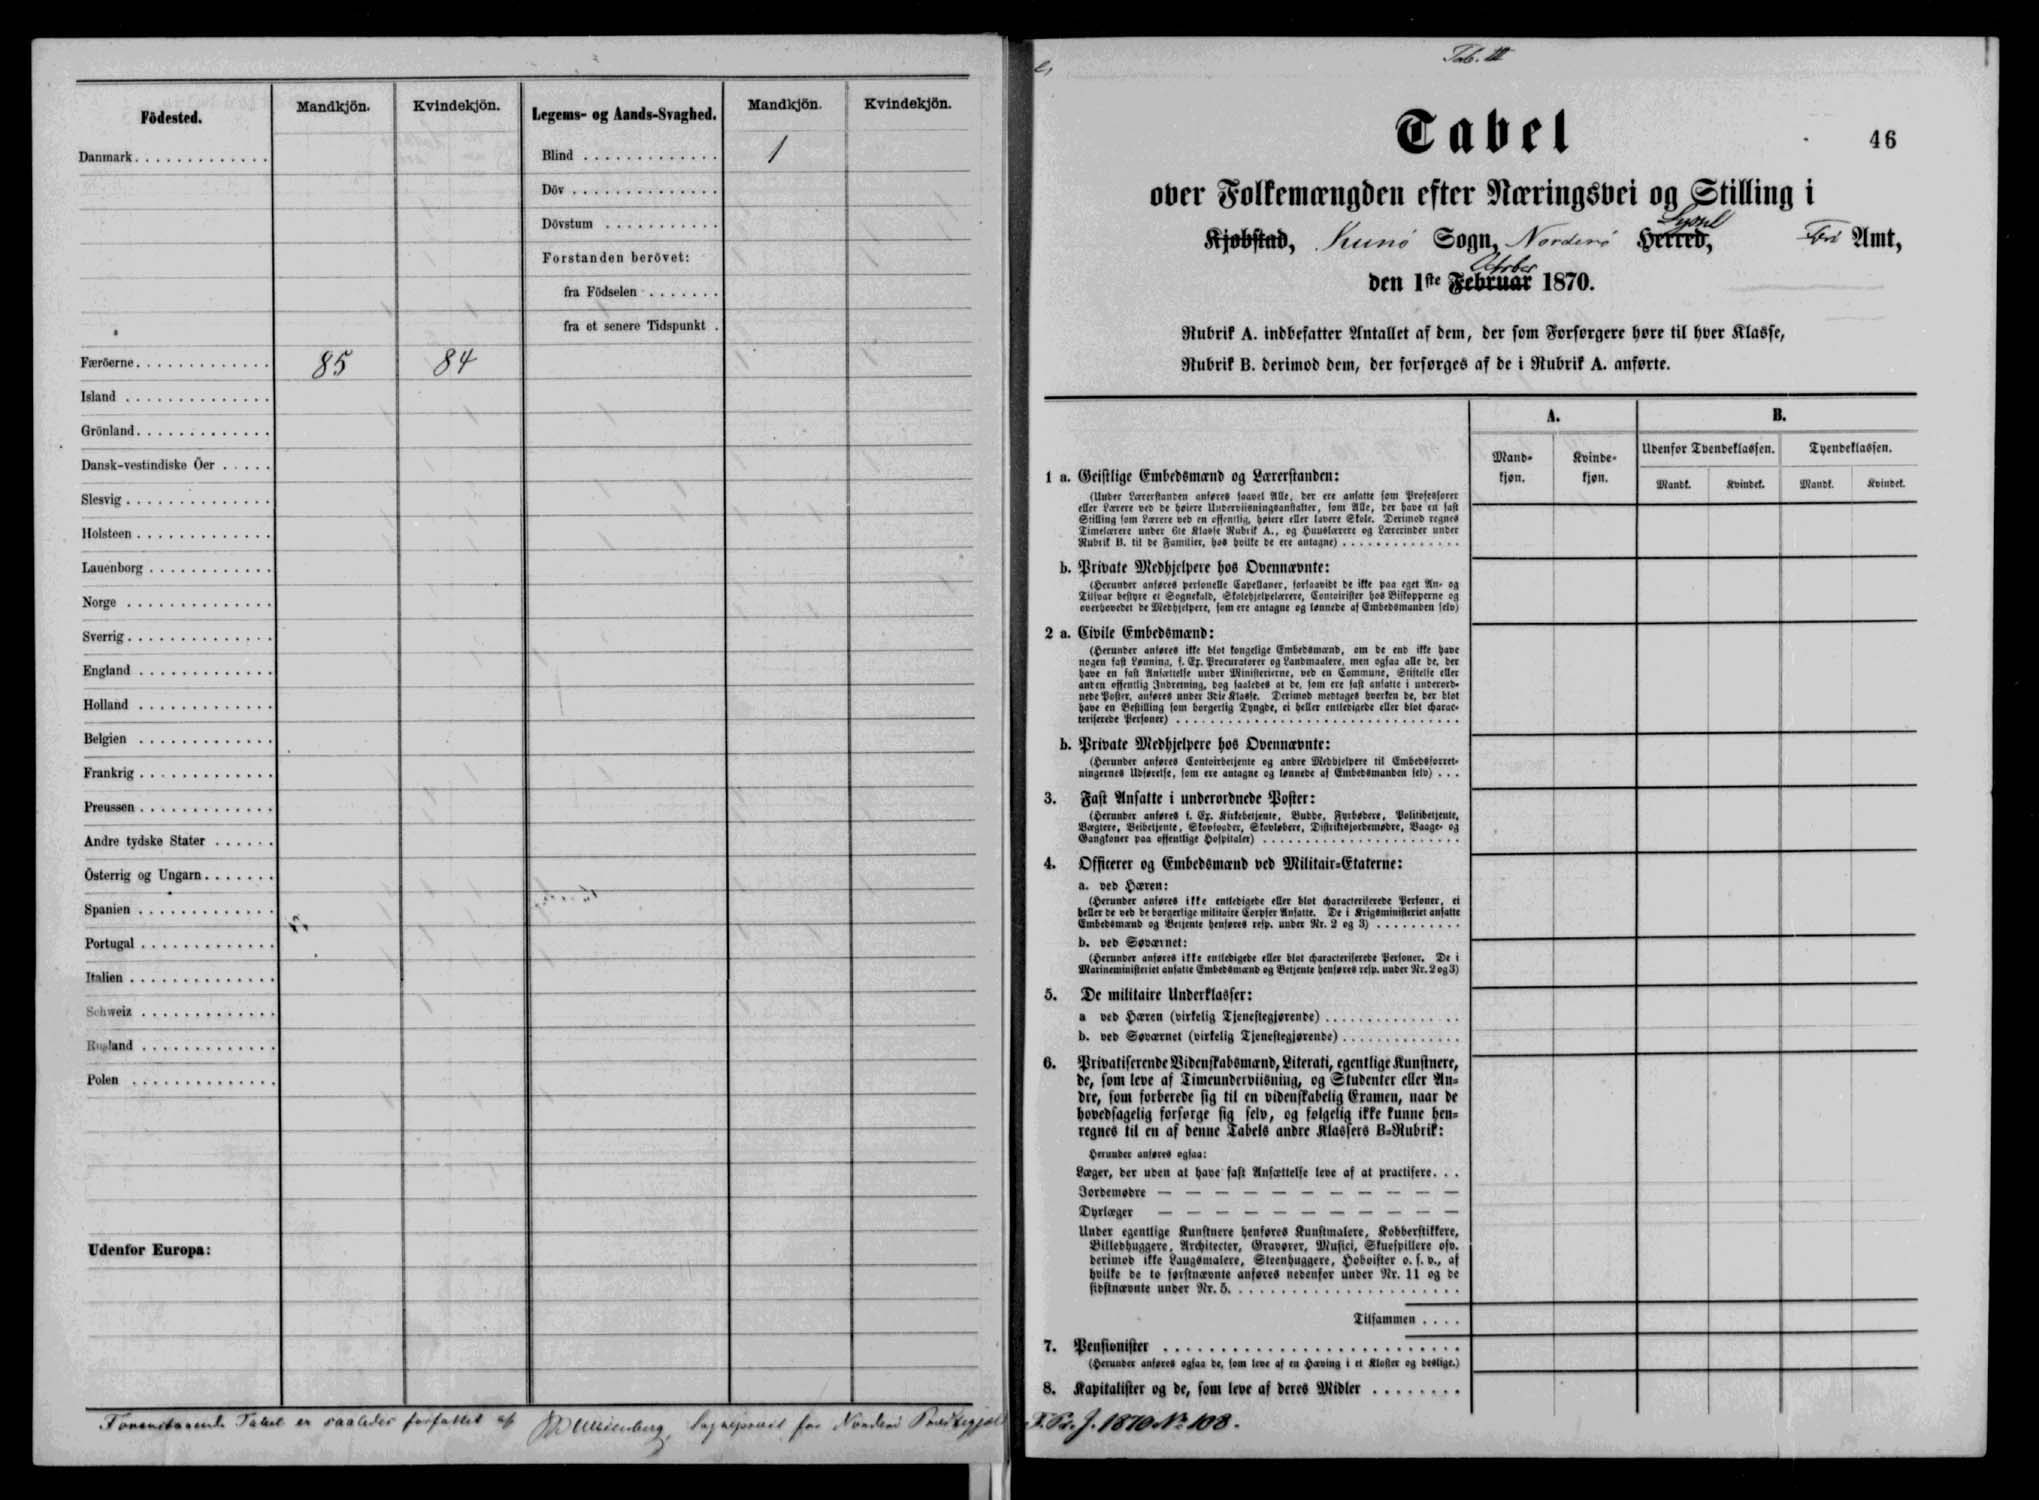 Födested.
Mandkjön.
Kvindekjön.
Legems- og Aands-Svaghed.
Mandkjön.
Kvindekjön.
Danmark
Blind 1
Döv
Dövstum
Forstanden berövet:
fra Födselen
fra et senere Tidspunkt
Færöerne 85 84
Island
Grönland
Dansk-vestindiske Öer
Slesvig
Holsteen
Lauenborg
Norge
Sverrig
England
Holland
Belgien
Frankrig
Preussen
Andre tydske Stater
Österrig og Ungarn
Spanien
Portugal
Italien
Schweiz
Rusland
Polen
Udenfor Europa:
Foranstaaende Tabel er saaledes forfattet af
Sognepræst for Norderö Præstegjæld
Tab. III
Tabel
46
over Folkemængden efter Næringsvei og Stilling i
Syssel
Kjøbstad, Kunö Sogn, Norderö Herred, Færö Amt,
Octbr
den 1ste Februar 1870.
Rubrik A. indbefatter Antallet af dem, der som Forsørgere høre til hver Klasse,
Rubrik B. derimod dem, der forsørges af de i Rubrik A. anførte.
A.
B.
Mand-
kjøn.
Kvinde-
kjøn.
Udenfor Tyendeklassen.
Tyendeklassen.
Mandk.
Kvindek.
Mandk.
Kvindek.
1 a. Geistlige Embedsmænd og Lærerstanden:
(Under Lærerstanden anføres saavel Alle, der ere ansatte som Professorer
eller Lærere ved de høiere Underviisningsanstalter, som Alle, der have en fast
Stilling som Lærere ved en offentlig, høiere eller lavere Skole. Derimod regnes
Timelærere under 6te Klasse Rubrik A., og Huuslærere og Lærerinder under
Rubrik B. til de Familier, hos hvilke de ere antagne)
b. Private Medhjelpere hos Ovennævnte:
(Herunder anføres personelle Capellaner, forsaavidt de ikke paa eget An- og
Tilsvar bestyre et Sognekald, Skolehjelpelærere, Contoirister hos Biskopperne og
overhovedet de Medhjelpere, som ere antagne og lønnede af Embedsmanden selv)
2 a. Civile Embedsmænd:
(Herunder anføres ikke blot kongelige Embedsmænd, om de end ikke have
nogen fast Lønning, f. Ex. Procuratorer og Landmaalere, men ogsaa alle de, der
have en fast Ansættelse under Ministerierne, ved en Commune, Stiftelse eller
anden offentlig Indretning, dog saaledes at de, som ere fast ansatte i underord-
nede Poster, anføres under 3die Klasse. Derimod medtages hverken de, der blot
have en Bestilling som borgerlig Tyngde, ei heller entledigede eller blot charac-
teriserede Personer)
b. Private Medhjelpere hos Ovennævnte:
(Herunder anføres Contoirbetjente og andre Medhjelpere til Embedsforret-
ningernes Udførelse, som ere antagne og lønnede af Embedsmanden selv)
3. Fast Ansatte i underordnede Poster:
(Herunder anføres f. Ex. Kirkebetjente, Budde, Fyrbødere, Politibetjente,
Vægtere, Veibetjente, Skovfogder, Skovløbere, Distriktsjordemødre, Vaage- og
Gangkoner paa offentlige Hospitaler)
4. Officerer og Embedsmænd ved Militair-Etaterne:
a. ved Hæren:
(Herunder anføres ikke entledigede eller blot characteriserede Personer, ei
heller de ved de borgerlige militaire Corpser Ansatte. De i Krigsministeriet ansatte
Embedsmænd og Betjente henføres resp. under Nr. 2 og 3)
b. ved Søværnet:
(Herunder anføres ikke entledigede eller blot characteriserede Personer. De i
Marineministeriet ansatte Embedsmænd og Betjente henføres resp. under Nr. 2 og 3)
5. De militaire Underklasser:
a ved Hæren (virkelig Tjenestegjørende)
b. ved Søværnet (virkelig Tjenestegjørende)
6. Privatiserende Videnskabsmænd, Literati, egentlige Kunstnere,
de, som leve af Timeunderviisning, og Studenter eller An-
dre, som forberede sig til en videnskabelig Examen, naar de
hovedsagelig forsørge sig selv, og følgelig ikke kunne hen-
regnes til en af denne Tabels andre Klassers B-Rubrik:
Herunder anføres ogsaa:
Læger, der uden at have fast Ansættelse leve af at practisere.
Jordemødre — — — — — — — — — —
Dyrlæger — — — — — — — — — —
Under egentlige Kunstnere henføres Kunstmalere, Kobberstikkere,
Billedhuggere, Architecter, Gravører, Musici, Skuespillere osv.
derimod ikke Laugsmalere, Steenhuggere, Hoboister o. s. v., af
hvilke de to førstnævnte anføres nedenfor under Nr. 11 og de
sidstnævnte under Nr. 5.
Tilsammen
7. Pensionister
(Herunder anføres ogsaa de, som leve af en Hæving i et Kloster og deslige.)
8. Kapitalister og de, som leve af deres Midler
F. Pr. J. 1870 No 108.